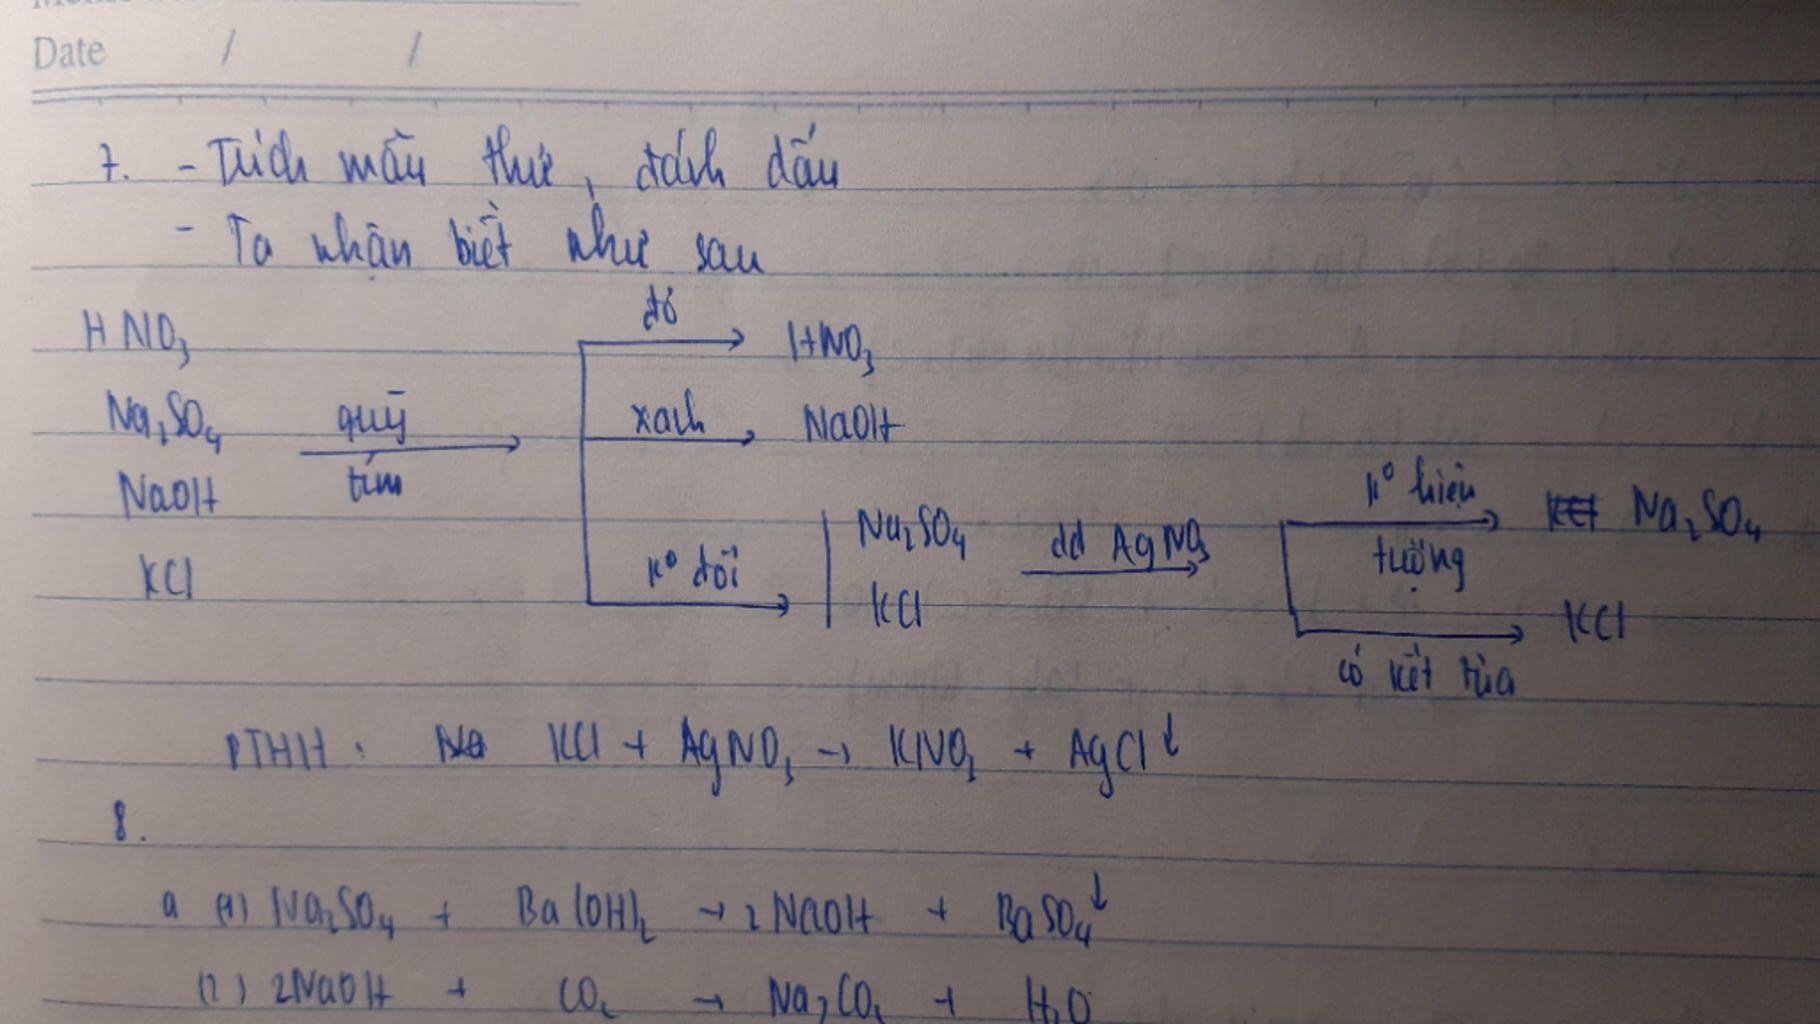 Date / /
7. - Trích mẫu thử, đánh dấu
- Ta nhận biết như sau
HNO₃
Na₂SO₄
NaOH
KCl
quỳ
tím
đỏ
HNO₃
xanh
NaOH
k° đổi
Na₂SO₄
KCl
dd AgNO₃
k° hiện
tượng
Na₂SO₄
có kết tủa
KCl
PTHH : KCl + AgNO₃ → KNO₃ + AgCl↓
8.
a (1) Na₂SO₄ + Ba(OH)₂ → 2NaOH + BaSO₄↓
(2) 2NaOH + CO₂ → Na₂CO₃ + H₂O